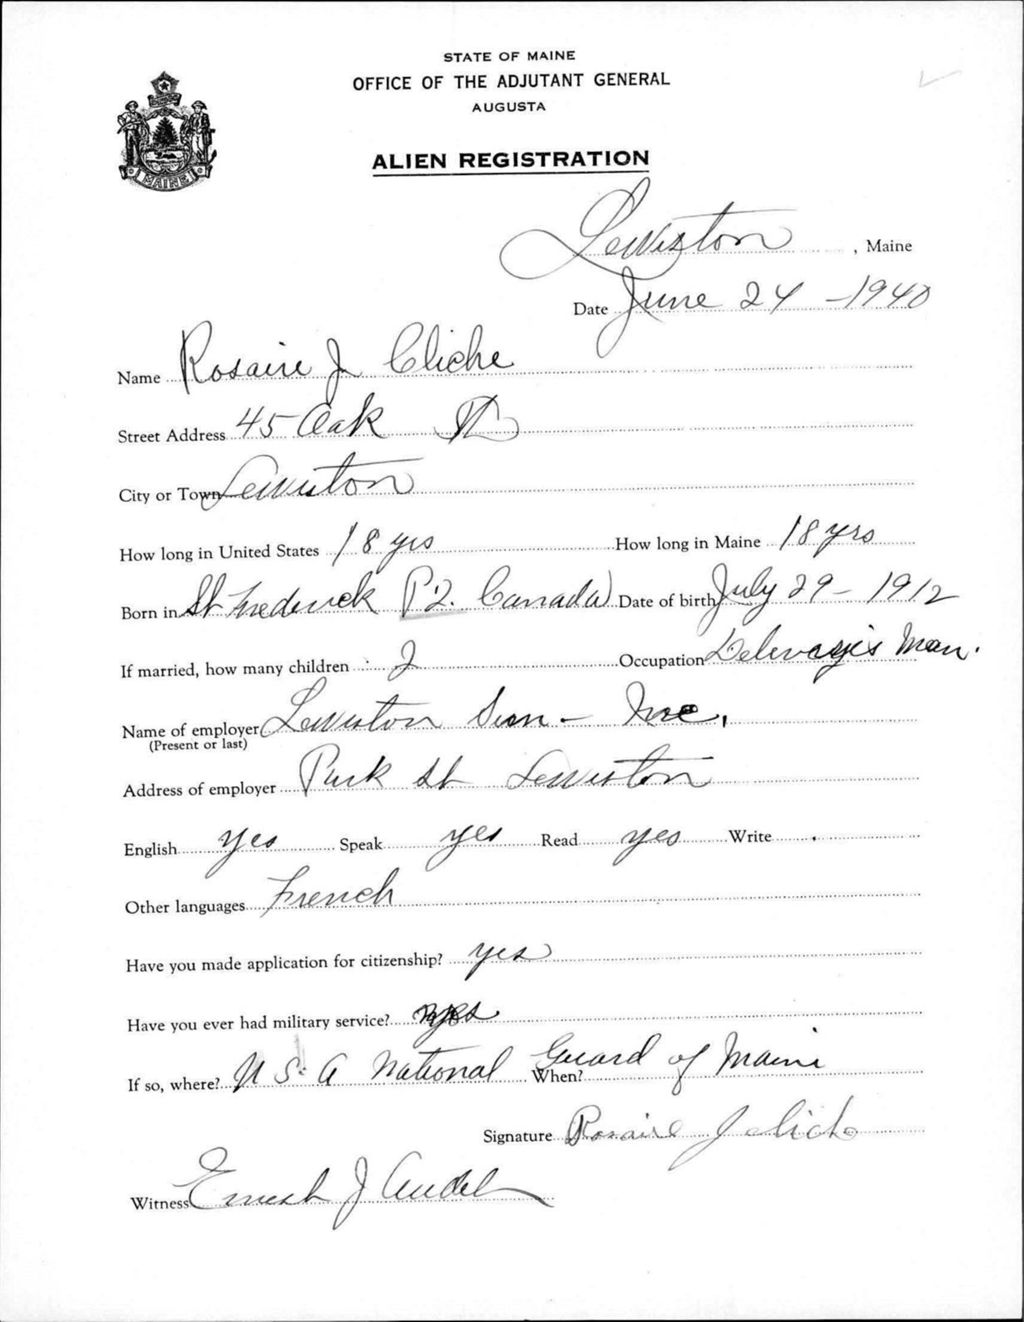 STATE OF MAINE
OFFICE OF THE ADJUTANT GENERAL
AUGUSTA
MAINE
ALIEN REGISTRATION
Lewiston, Maine
Date June 24 - 1940
Name Rosaire J Cliche
Street Address 45 Oak St
City or Town Lewiston
How long in United States 18 yrs How long in Maine 18 yrs
Born in St Frederick P2. Canada Date of birth July 29 - 1912
If married, how many children 2 Occupation Man.
Name of employer Lewiston Sun - Inc.
(Present or last)
Address of employer Park St Lewiston
English yes Speak yes Read yes Write
Other languages French
Have you made application for citizenship? yes
Have you ever had military service? yes
If so, where? U S. A National Guard of Maine When?
Signature Rosaire J Cliche
Witness Ernest J